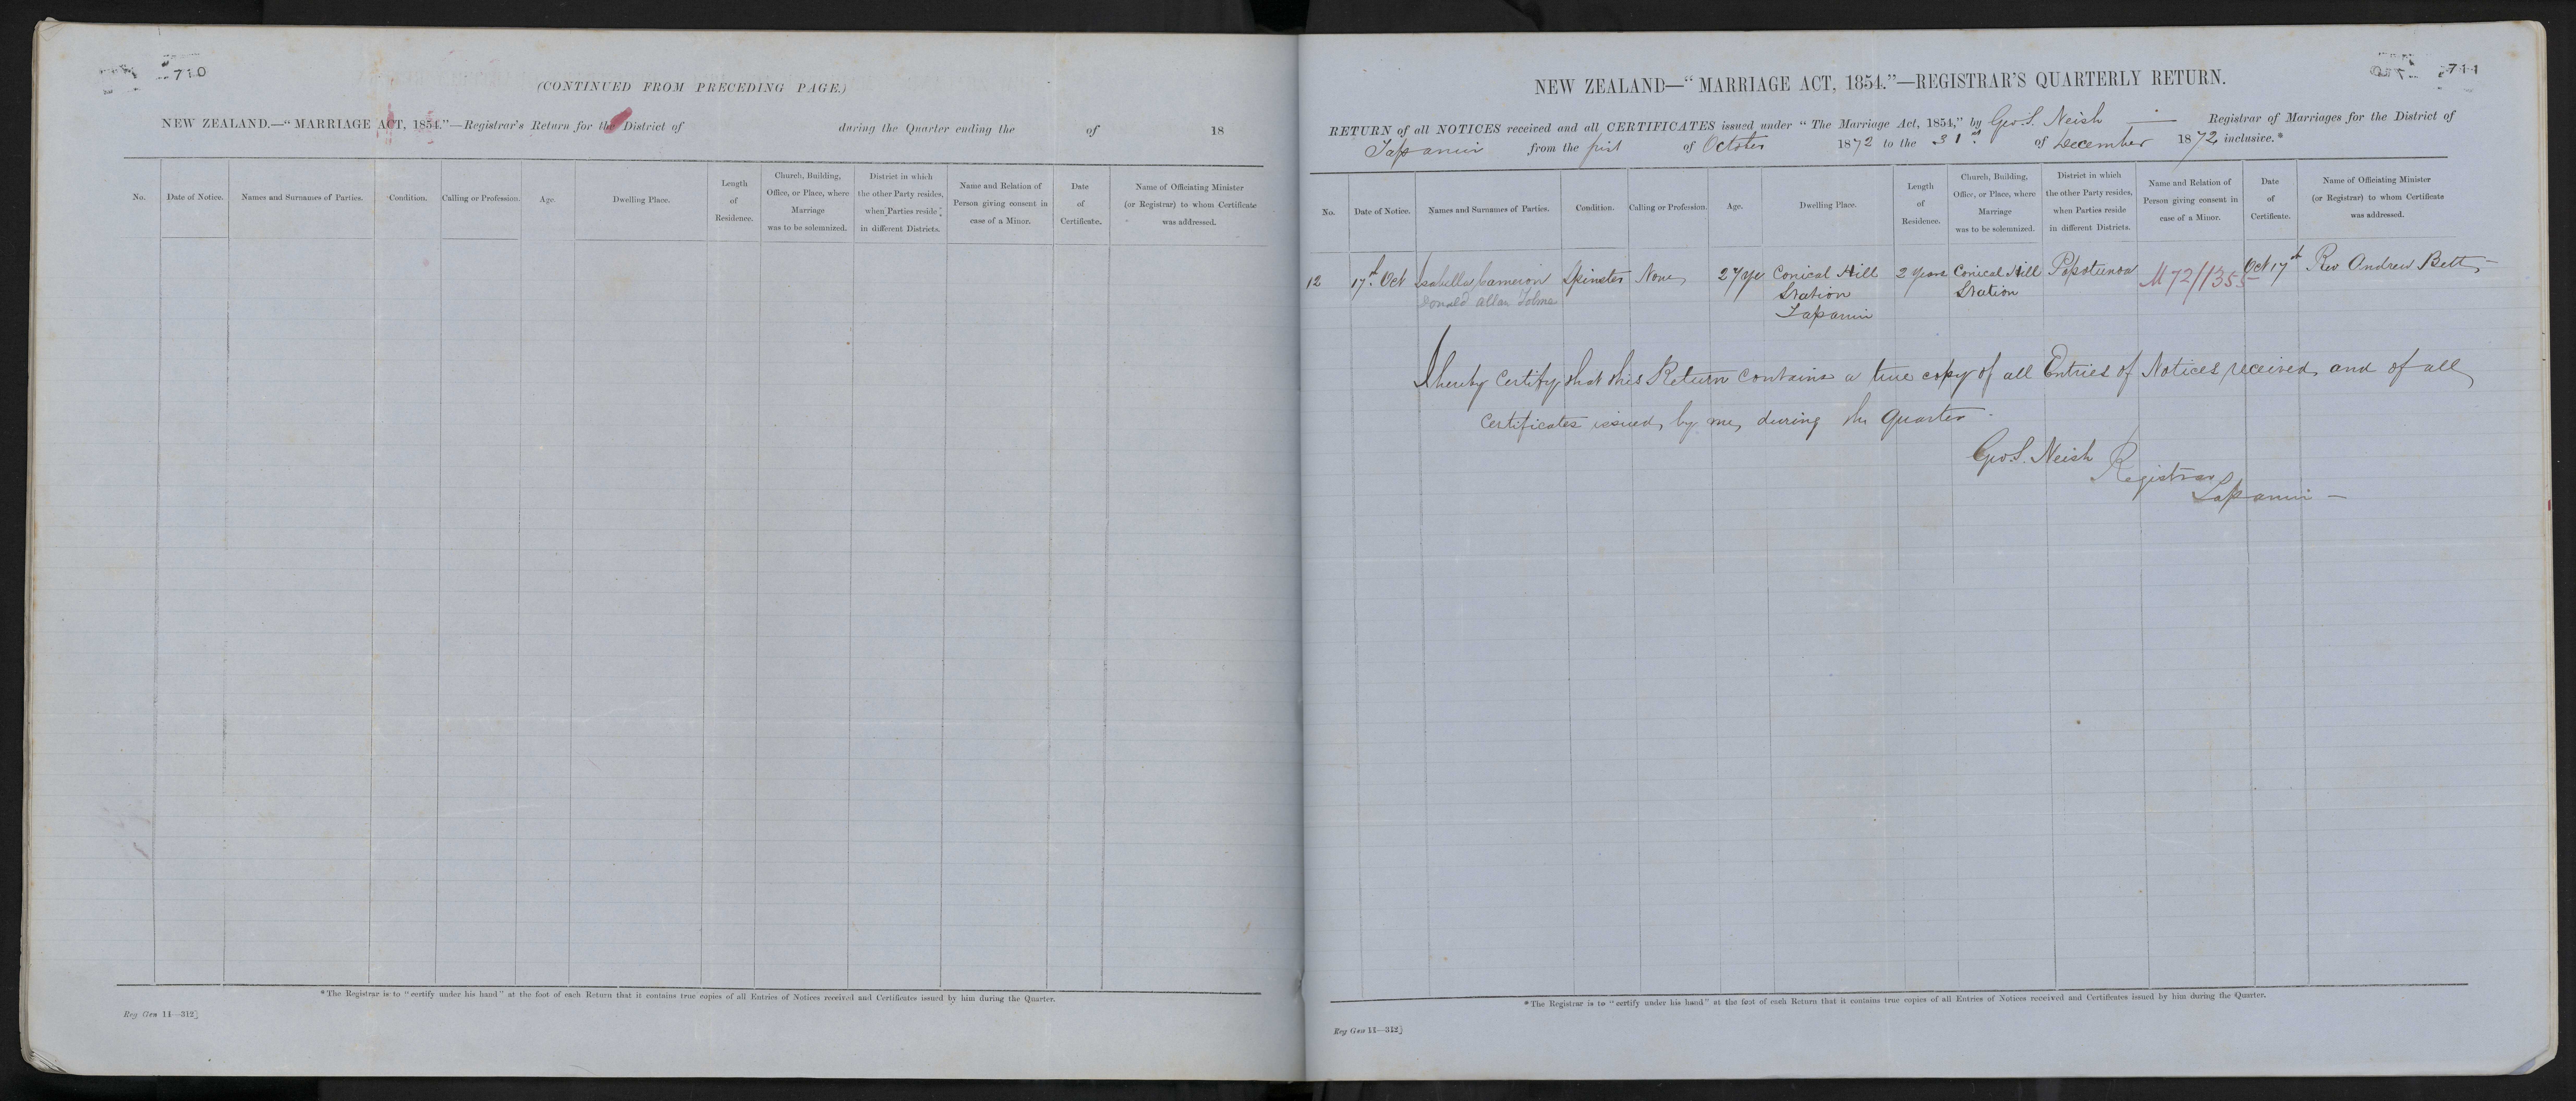 710
(CONTINUED FROM PRECEDING PAGE.)
NEW ZEALAND.—“MARRIAGE ACT, 1854.”—Registrar's Return for the District of during the Quarter ending the of 18
No.
Date of Notice.
Names and Surnames of Parties.
Condition.
Calling or Profession.
Age.
Dwelling Place.
Length
of
Residence.
Church, Building,
Office, or Place, where
Marriage
was to be solemnized.
District in which
the other Party resides,
when Parties reside
in different Districts.
Name and Relation of
Person giving consent in
case of a Minor.
Date
of
Certificate.
Name of Officiating Minister
(or Registrar) to whom Certificate
was addressed.
*The Registrar is to “certify under his hand” at the foot of each Return that it contains true copies of all Entries of Notices received and Certificates issued by him during the Quarter.
Reg Gen 11—312]
711
NEW ZEALAND—“MARRIAGE ACT, 1854.”—REGISTRAR'S QUARTERLY RETURN.
RETURN of all NOTICES received and all CERTIFICATES issued under “The Marriage Act, 1854,” by Geo S. Neish — Registrar of Marriages for the District of
Tapanui from the first of October 1872 to the 31st of December 1872 inclusive.*
No.
Date of Notice.
Names and Surnames of Parties.
Condition.
Calling or Profession.
Age.
Dwelling Place.
Length
of
Residence.
Church, Building,
Office, or Place, where
Marriage
was to be solemnized.
District in which
the other Party resides,
when Parties reside
in different Districts.
Name and Relation of
Person giving consent in
case of a Minor.
Date
of
Certificate.
Name of Officiating Minister
(or Registrar) to whom Certificate
was addressed.
12 17th Oct Isabella Cameron Spinster None 27 yr Conical Hill 2 years Conical Hill Popotunoa M72/1355 Oct 17th Rev Andrew Bett —
Donald Allan Tolme Station Station
Tapanui
I hereby certify that this Return contains a true copy of all Entries of Notices received, and of all
Certificates issued, by me, during the Quarter.
Geo S. Neish
Registrar
Tapanui —
*The Registrar is to “certify under his hand” at the foot of each Return that it contains true copies of all Entries of Notices received and Certificates issued by him during the Quarter.
Reg Gen 11—312]